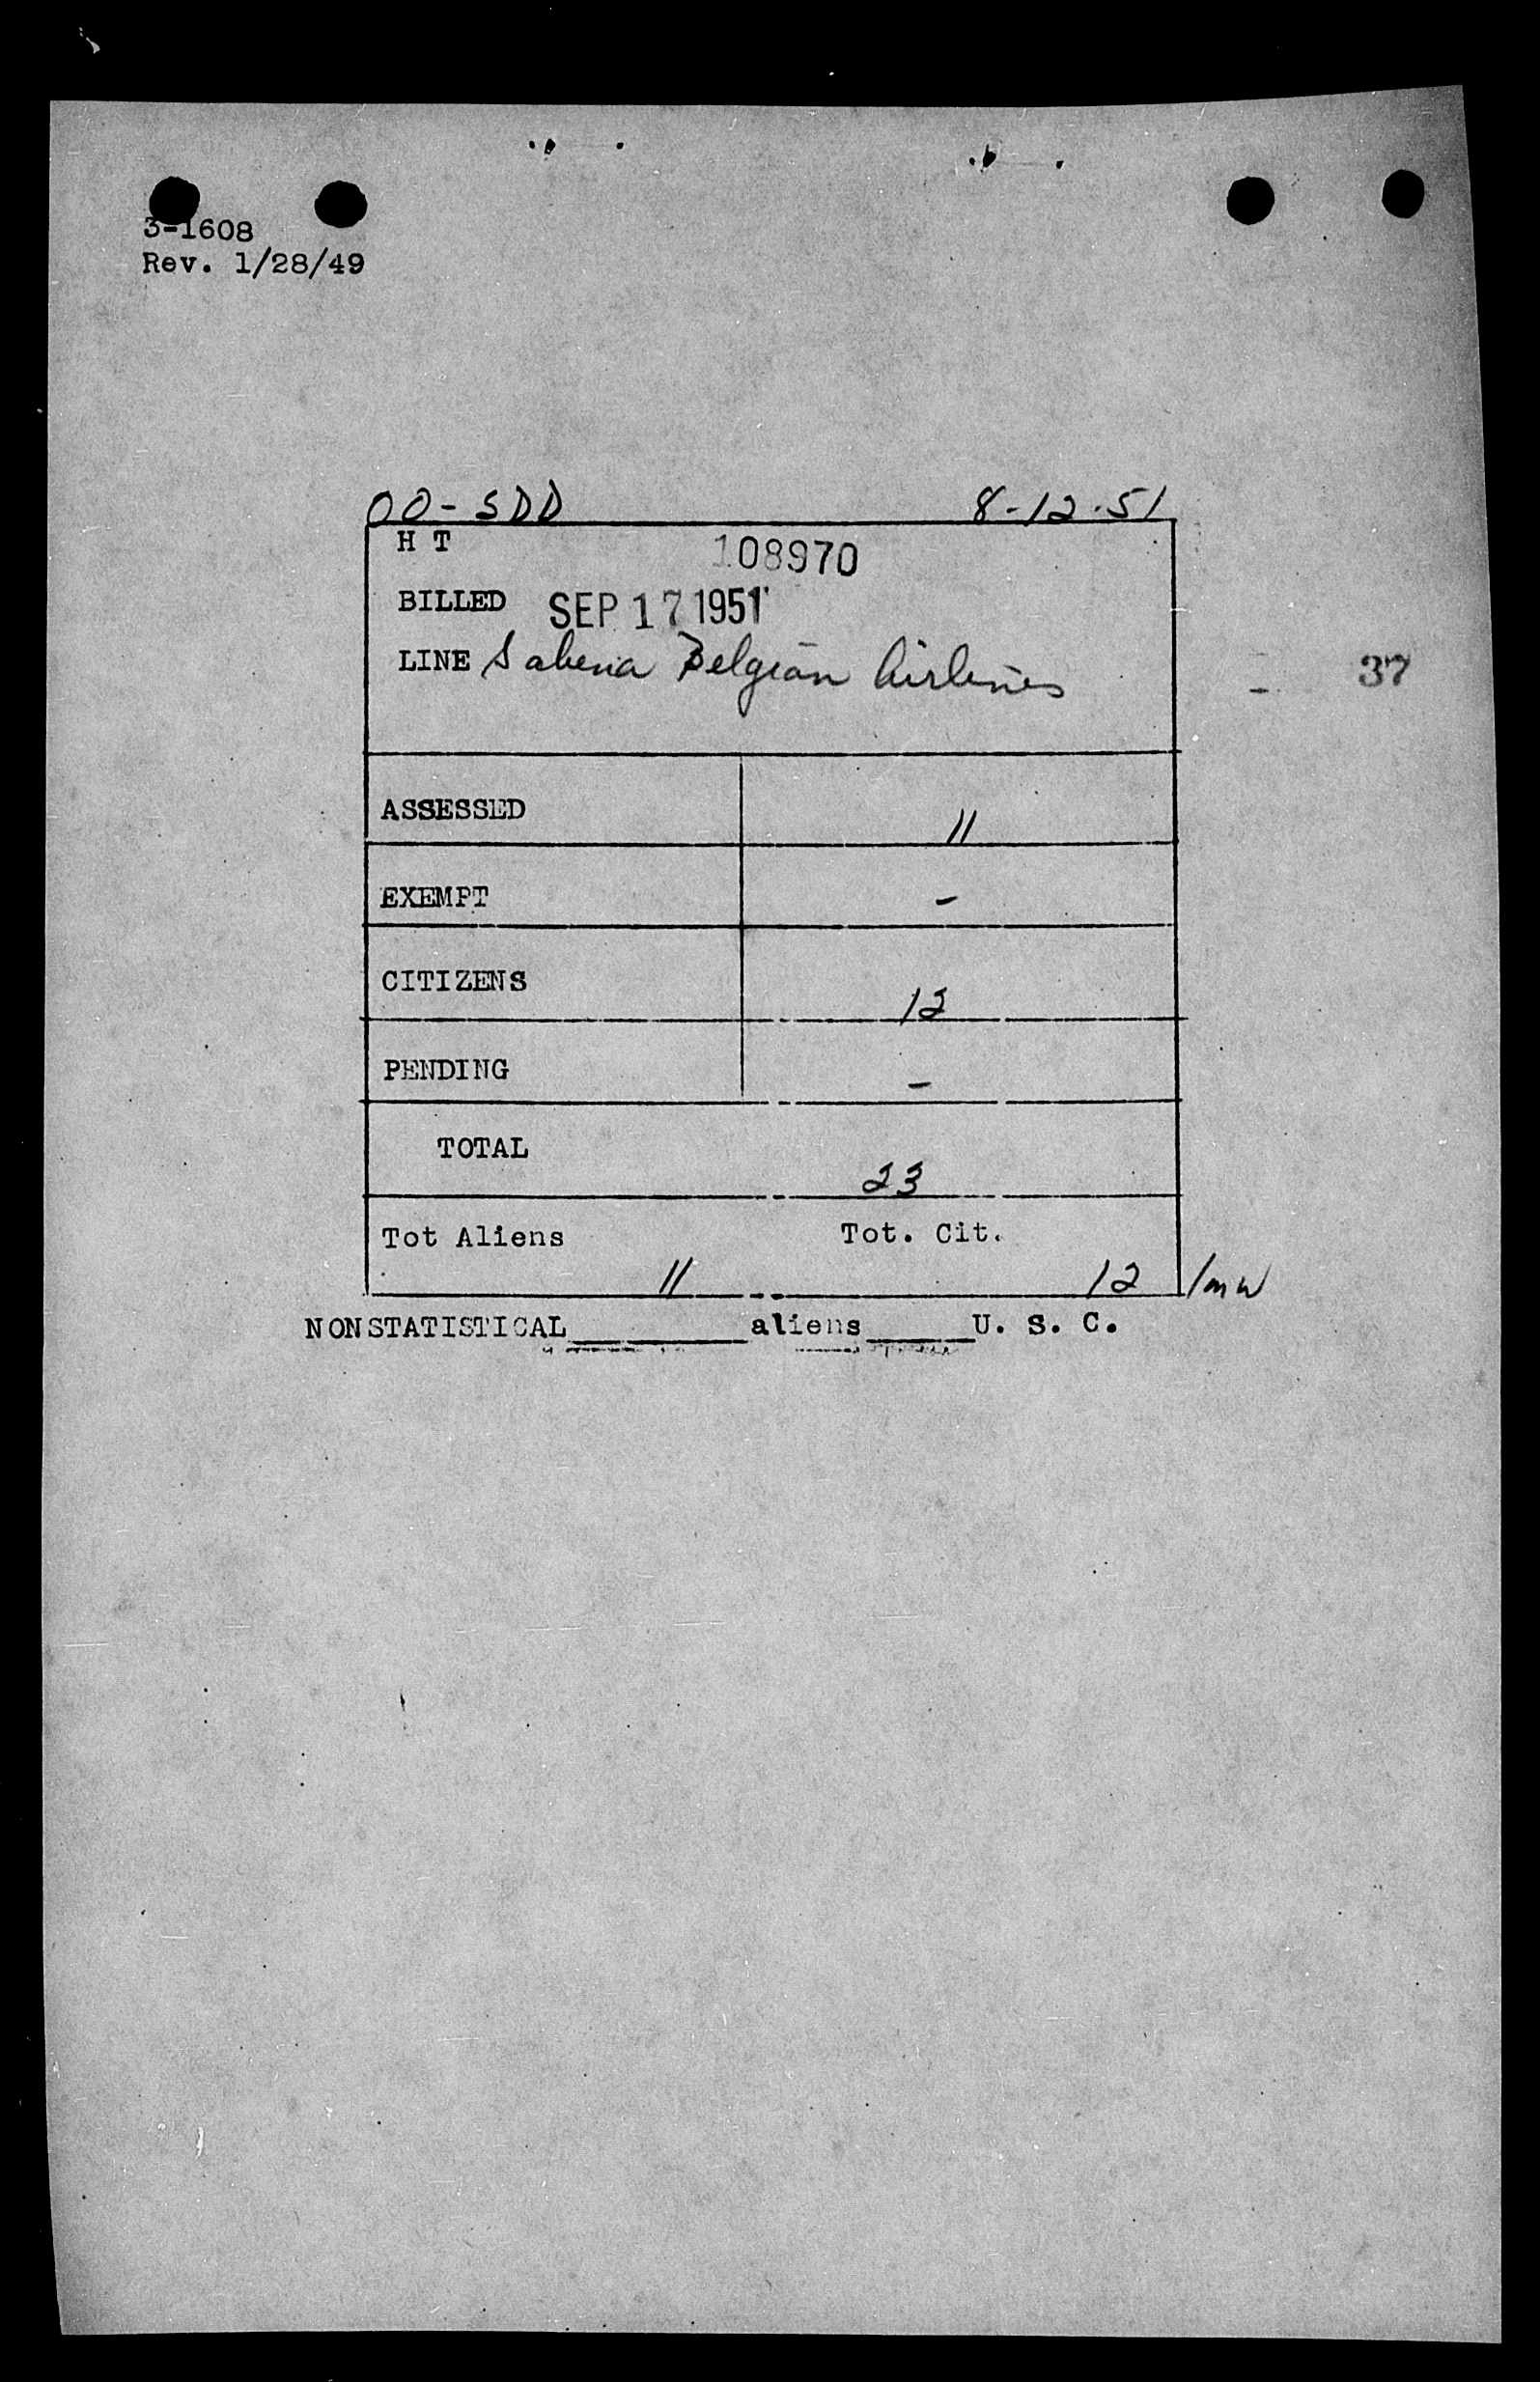 3-1608
Rev. 1/28/49
OO-SDD 8-12-51
H T 108970
BILLED SEP 17 1951
LINE Sabena Belgian Airlines
37
ASSESSED 11
EXEMPT -
CITIZENS 12
PENDING -
TOTAL 23
Tot Aliens Tot. Cit.
11 12 /mw
NONSTATISTICAL________aliens_____U. S. C.